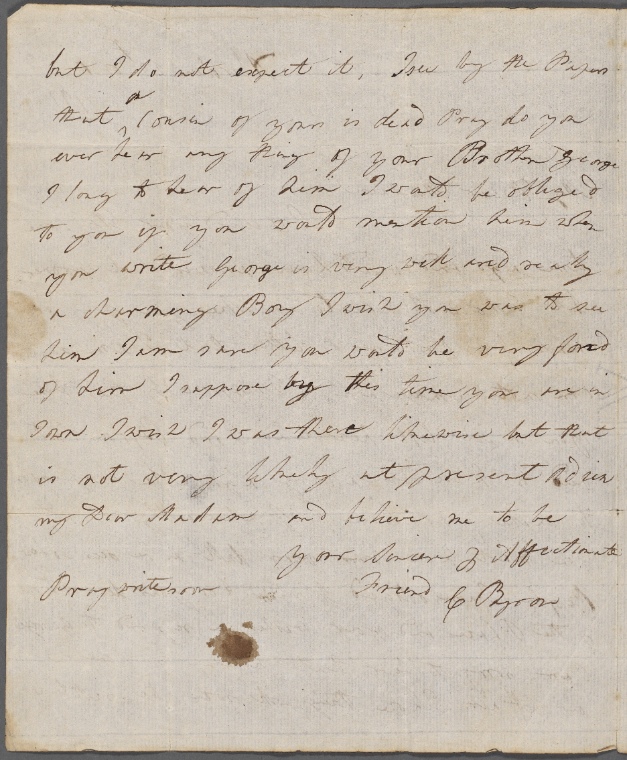 but I do not expect it, I see by the Papers
that a Cousin of yours is dead Pray do you
ever hear any thing of your Brother George
I long to hear of him I would be obliged
to you if you would mention him when
you write George is very well and really
a charming Boy I wish you was to see
him I am sure you would be very fond
of him I suppose by this time you are in
Town I wish I was there likewise but that
is not very likely at present Adieu
my Dear Madam and believe me to be
your Sincere & Affectionate
Pray write soon Friend C Byron